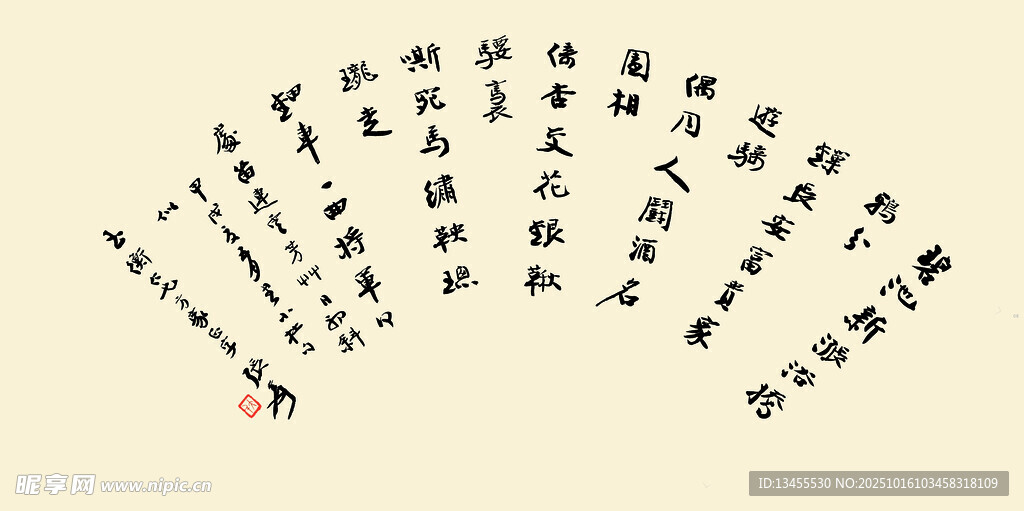 碧池新漲浴嬌
鴉分
鏁長安富貴家
遊騎
偶同人鬪酒名
園相
倚杏交花銀鞦
騕褭
嘶宛馬繡鞅璁
瓏走
鈿車一曲將軍何
處笛連雲芳艸日初斜
甲戌立夏書小杜句
似
士衡仁兄方家正字
張
昵享网 www.nipic.cn
ID:13455530 NO:20251016103458318109